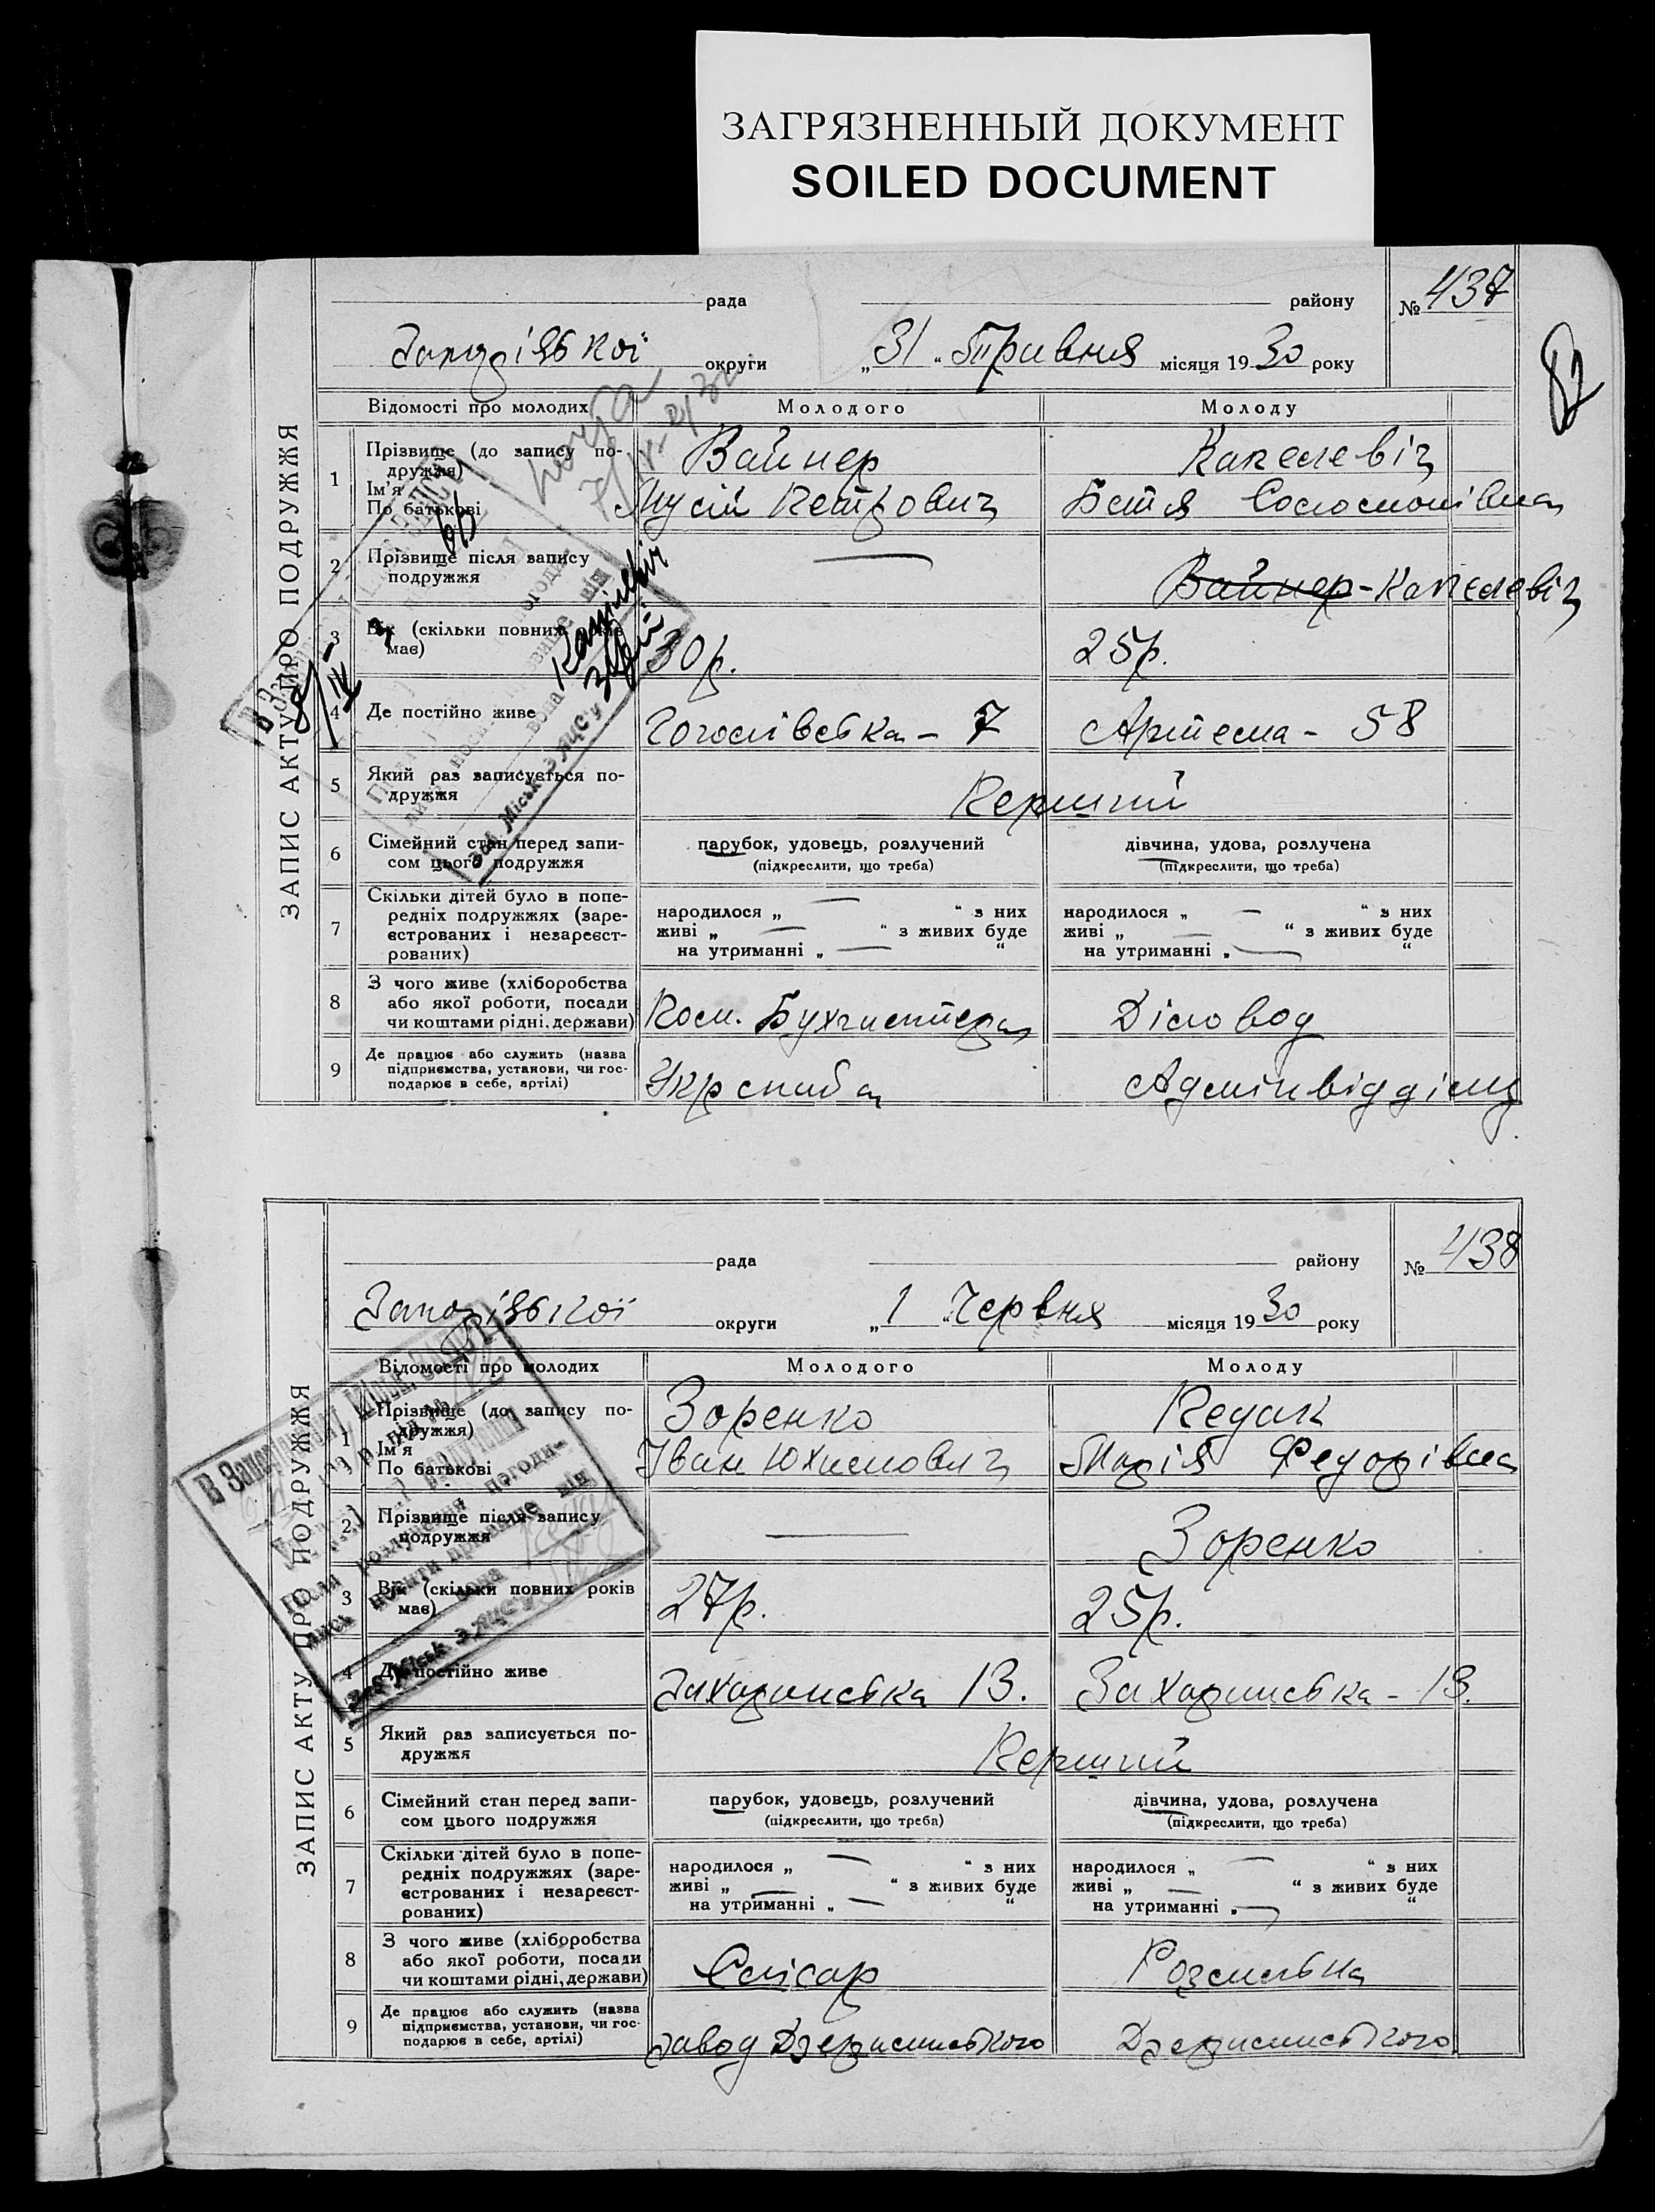 ЗАГРЯЗНЕННЫЙ ДОКУМЕНТ
SOILED DOCUMENT
ЗАПИС АКТУ ПРО ПОДРУЖЖЯ
рада району № 437
округи „31“ Травня місяця 1930 року
82
Відомості про молодих Молодого Молоду
1 Прізвище (до запису по-
дружжя)
Ім'я
По батькові
Вайнер Капелевіч
Мусій Петрович Бетя Соломонівна
2 Прізвище після запису
подружжя
— Вайнер-Капелевіч
3 Вік (скільки повних років
має)
30р. 25р.
4 Де постійно живе Гоголівська - 7 Артема - 58
5 Який раз записується по-
дружжя
Перший
6 Сімейний стан перед запи-
сом цього подружжя
парубок, удовець, розлучений дівчина, удова, розлучена
(підкреслити, що треба) (підкреслити, що треба)
7 Скільки дітей було в попе-
редніх подружжях (заре-
єстрованих і незареєст-
рованих)
народилося „ — “ з них народилося „ — “ з них
живі „ — “ з живих буде живі „ — “ з живих буде
на утриманні „ — “ на утриманні „ — “
8 З чого живе (хліборобства
або якої роботи, посади
чи коштами рідні, держави)
Бухгалтера Діловод
9 Де працює або служить (назва
підприємства, установи, чи гос-
подарює в себе, артілі)
Адмінвідділу
ЗАПИС АКТУ ПРО ПОДРУЖЖЯ
рада району № 438
округи „1“ Червня місяця 1930 року
Відомості про молодих Молодого Молоду
1 Прізвище (до запису по-
дружжя)
Ім'я
По батькові
Зоренко
Іван Юхимович Марія Федорівна
2 Прізвище після запису
подружжя
— Зоренко
3 Вік (скільки повних років
має)
27р. 25р.
4 Де постійно живе 13. 13.
5 Який раз записується по-
дружжя
Перший
6 Сімейний стан перед запи-
сом цього подружжя
парубок, удовець, розлучений дівчина, удова, розлучена
(підкреслити, що треба) (підкреслити, що треба)
7 Скільки дітей було в попе-
редніх подружжях (заре-
єстрованих і незареєст-
рованих)
народилося „ — “ з них народилося „ — “ з них
живі „ — “ з живих буде живі „ — “ з живих буде
на утриманні „ — “ на утриманні „ — “
8 З чого живе (хліборобства
або якої роботи, посади
чи коштами рідні, держави)
Слісар
9 Де працює або служить (назва
підприємства, установи, чи гос-
подарює в себе, артілі)
завод Дзержинського Дзержинського